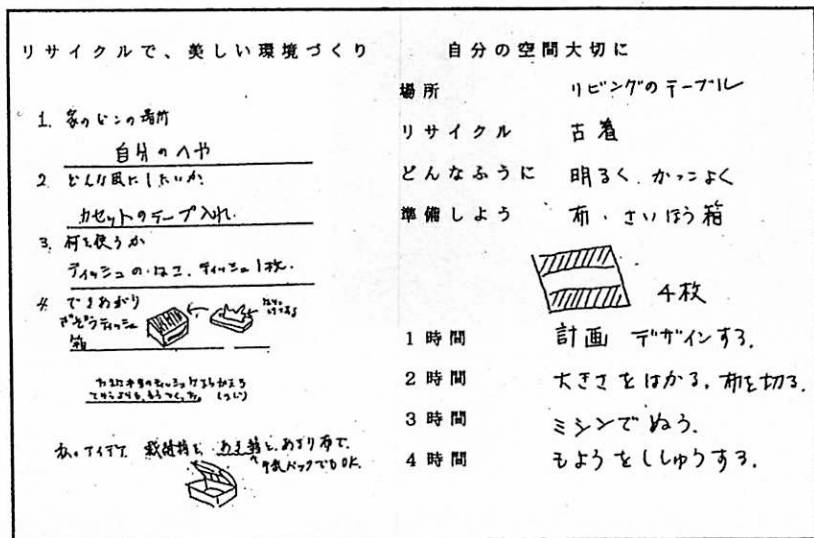 リサイクルで、美しい環境づくり
1. 家のどこの場所
自分のへや
2. どんな風にしたいか
カセットのテープ入れ.
3. 何を使うか
ティッシュのはこ、ティッシュ1枚.
4. できあがり
ぎぞうティッシュ
箱
私のアイデア 裁縫箱を、あき箱と、あまり布で、
牛乳パックでもOK.
自分の空間大切に
場所 リビングのテーブル
リサイクル 古着
どんなふうに 明るく、かっこよく
準備しよう 布、さいほう箱
4枚
1時間 計画 デザインする.
2時間 大きさをはかる、布を切る.
3時間 ミシンでぬう.
4時間 もようをししゅうする.